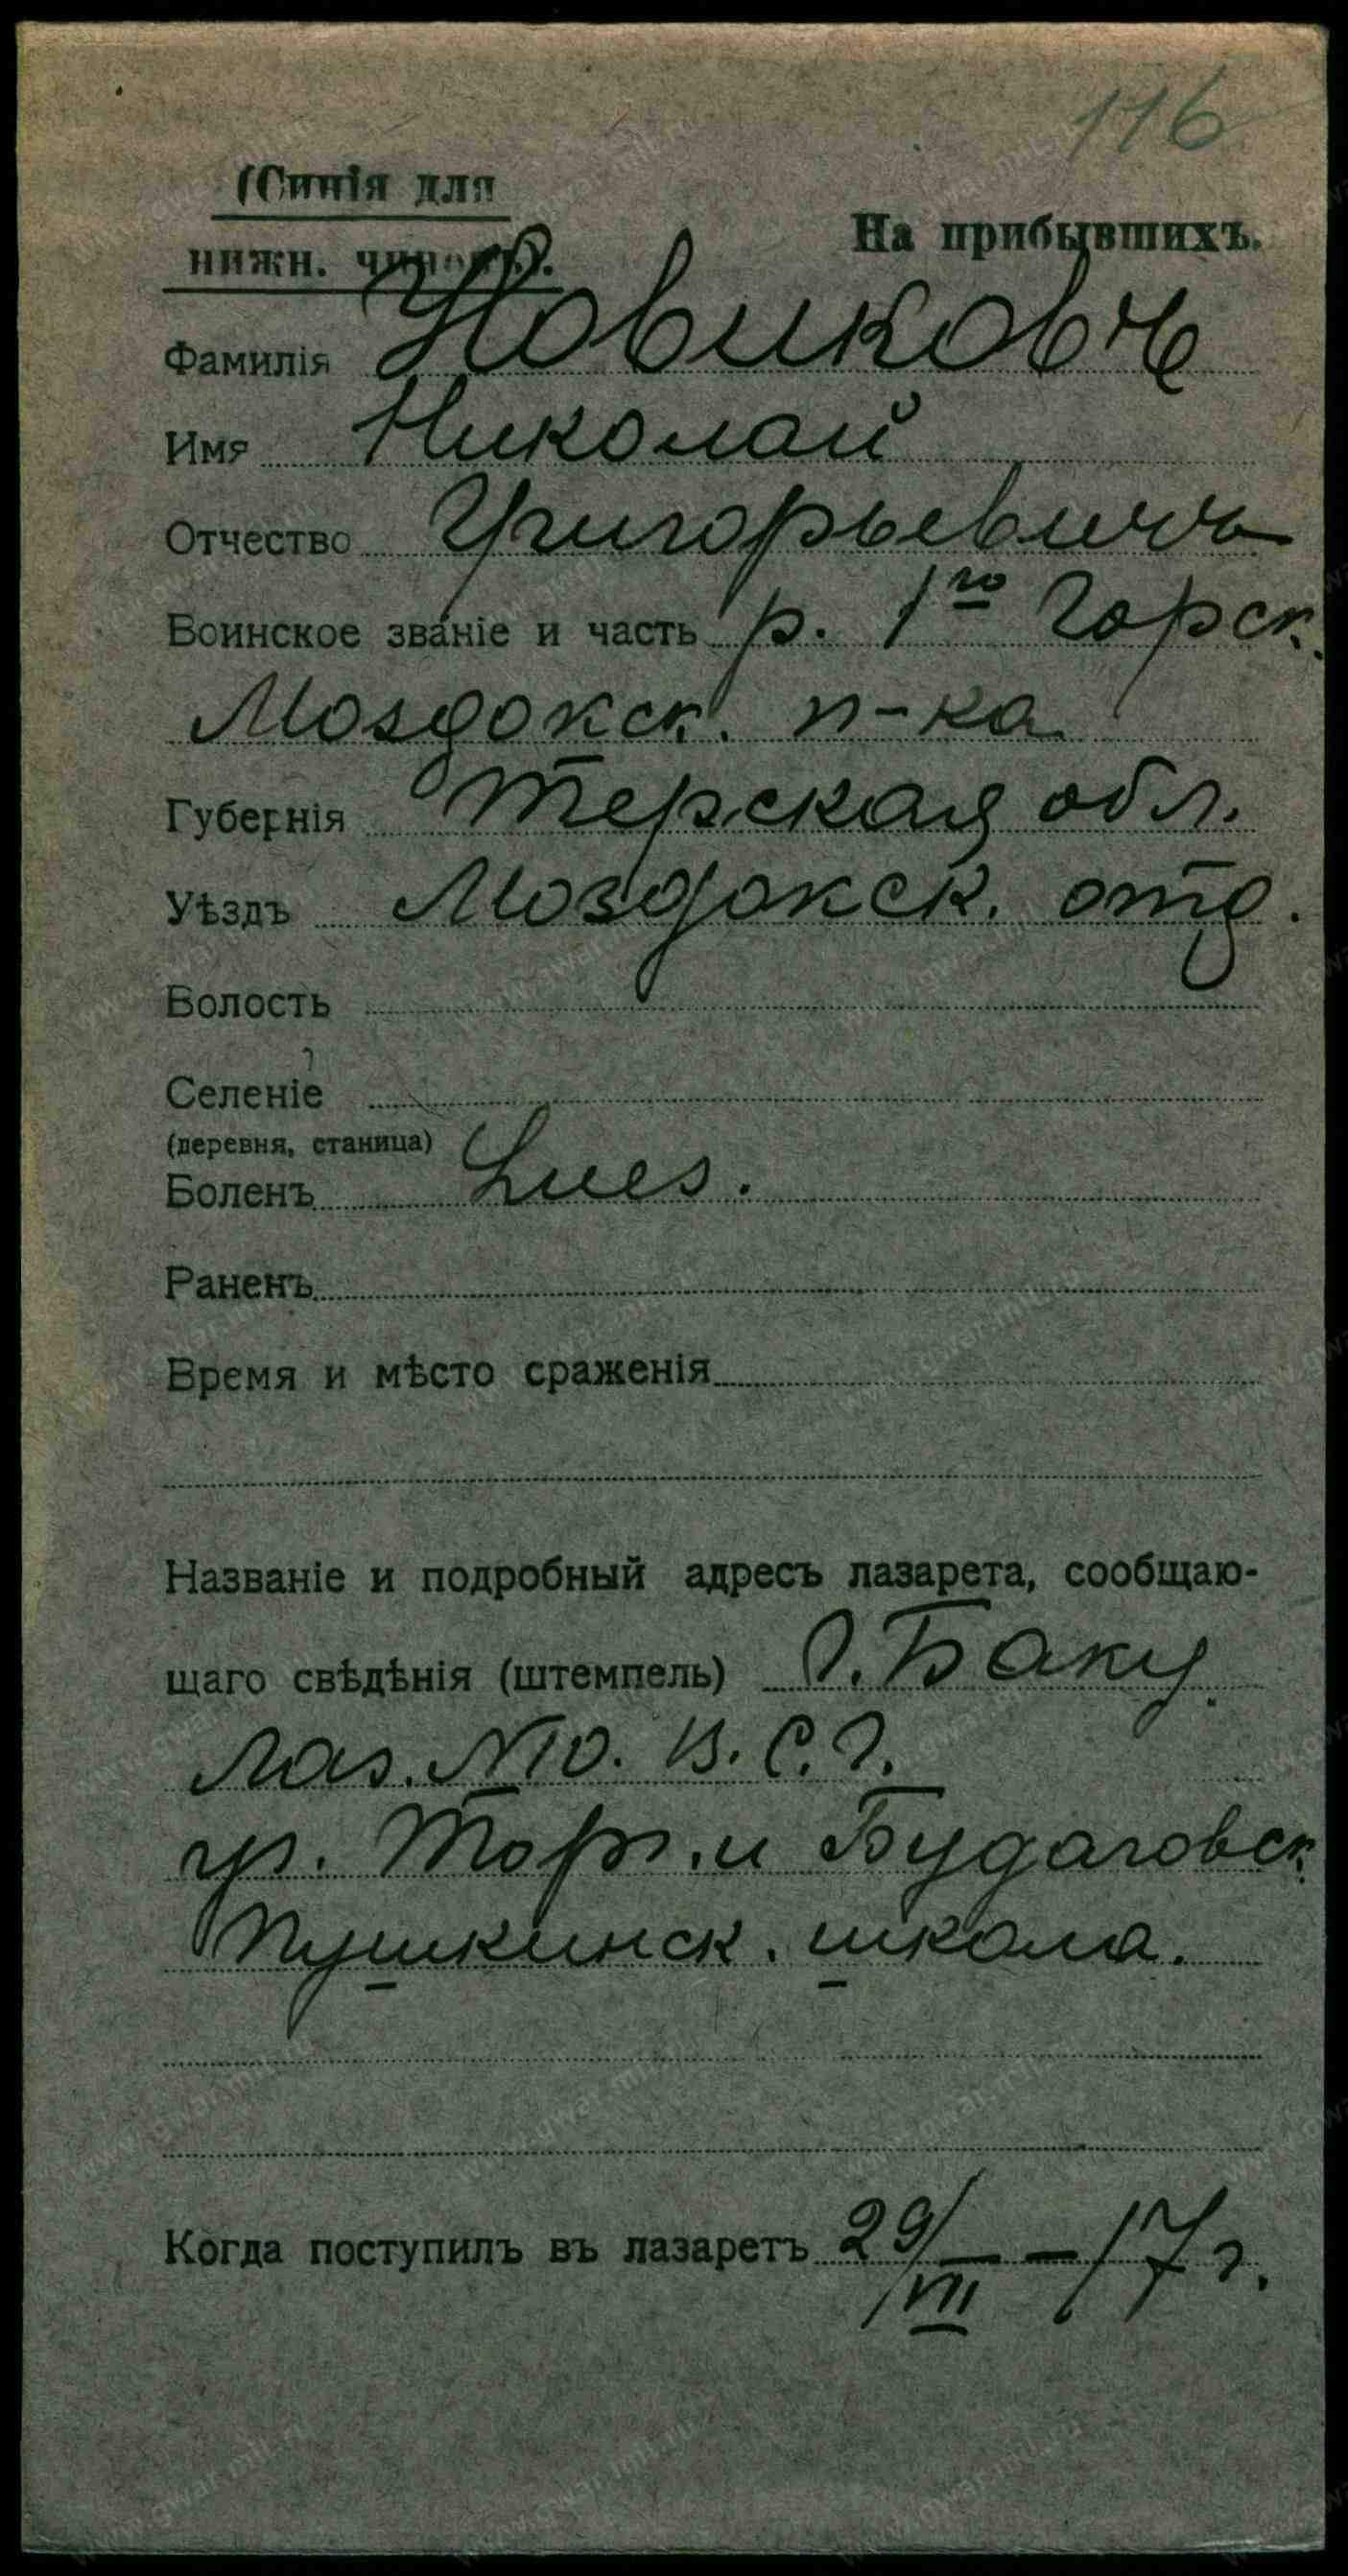 116
(Синія для
нижн. чиновъ).
На прибывшихъ.
Фамилія Новиковъ
Имя Николай
Отчество Григорьевичъ
Воинское званіе и часть р. 1го Горск.
Моздокск. п-ка
Губернія Терская обл.
Уѣздъ Моздокск. отд.
Волость
Селеніе
(деревня, станица)
Боленъ Lues.
Раненъ
Время и мѣсто сраженія
Названіе и подробный адресъ лазарета, сообщаю-
щаго свѣдѣнія (штемпель) г. Баку.
Лаз. №10. В. С. Г.
уг. Торг. и Будаговск.
Пушкинск. школа.
Когда поступилъ въ лазаретъ 29/VII – 17 г.